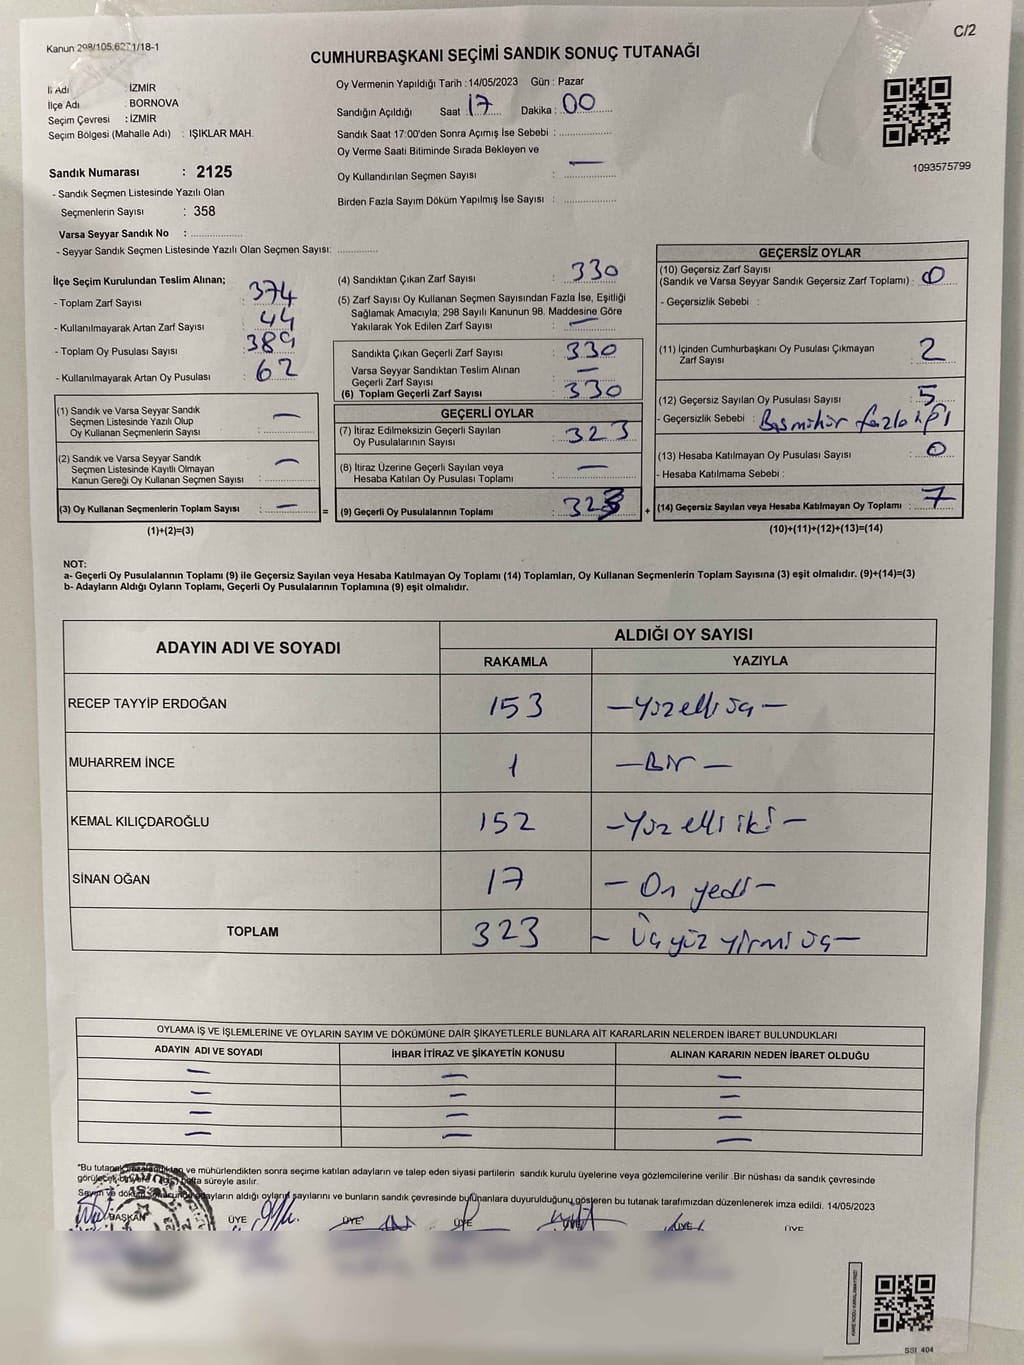 Kanun 298/105,6271/18-1
C/2
CUMHURBAŞKANI SEÇİMİ SANDIK SONUÇ TUTANAĞI
İl Adı : İZMİR
İlçe Adı : BORNOVA
Seçim Çevresi : İZMİR
Seçim Bölgesi (Mahalle Adı) : IŞIKLAR MAH.
Sandık Numarası : 2125
- Sandık Seçmen Listesinde Yazılı Olan
Seçmenlerin Sayısı : 358
Varsa Seyyar Sandık No : ................
- Seyyar Sandık Seçmen Listesinde Yazılı Olan Seçmen Sayısı: ............
Oy Vermenin Yapıldığı Tarih : 14/05/2023 Gün : Pazar
Sandığın Açıldığı Saat 17 Dakika : 00
Sandık Saat 17:00'den Sonra Açımış İse Sebebi : ................
Oy Verme Saati Bitiminde Sırada Bekleyen ve
Oy Kullandırılan Seçmen Sayısı : —
Birden Fazla Sayım Döküm Yapılmış İse Sayısı : ................
1093575799
İlçe Seçim Kurulundan Teslim Alınan;
- Toplam Zarf Sayısı : 374
- Kullanılmayarak Artan Zarf Sayısı : 44
- Toplam Oy Pusulası Sayısı : 389
- Kullanılmayarak Artan Oy Pusulası : 62
(1) Sandık ve Varsa Seyyar Sandık
Seçmen Listesinde Yazılı Olup
Oy Kullanan Seçmenlerin Sayısı : —
(2) Sandık ve Varsa Seyyar Sandık
Seçmen Listesinde Kayıtlı Olmayan
Kanun Gereği Oy Kullanan Seçmen Sayısı : —
(3) Oy Kullanan Seçmenlerin Toplam Sayısı : — =
(1)+(2)=(3)
(4) Sandıktan Çıkan Zarf Sayısı : 330
(5) Zarf Sayısı Oy Kullanan Seçmen Sayısından Fazla İse, Eşitliği
Sağlamak Amacıyla, 298 Sayılı Kanunun 98. Maddesine Göre
Yakılarak Yok Edilen Zarf Sayısı : —
Sandıkta Çıkan Geçerli Zarf Sayısı : 330
Varsa Seyyar Sandıktan Teslim Alınan
Geçerli Zarf Sayısı : —
(6) Toplam Geçerli Zarf Sayısı : 330
GEÇERLİ OYLAR
(7) İtiraz Edilmeksizin Geçerli Sayılan
Oy Pusulalarının Sayısı : 323
(8) İtiraz Üzerine Geçerli Sayılan veya
Hesaba Katılan Oy Pusulası Toplamı : —
(9) Geçerli Oy Pusulalarının Toplamı : 323 +
GEÇERSİZ OYLAR
(10) Geçersiz Zarf Sayısı
(Sandık ve Varsa Seyyar Sandık Geçersiz Zarf Toplamı) : 0
- Geçersizlik Sebebi :
(11) İçinden Cumhurbaşkanı Oy Pusulası Çıkmayan
Zarf Sayısı : 2
(12) Geçersiz Sayılan Oy Pusulası Sayısı : 5
- Geçersizlik Sebebi :
(13) Hesaba Katılmayan Oy Pusulası Sayısı : 0
- Hesaba Katılmama Sebebi :
(14) Geçersiz Sayılan veya Hesaba Katılmayan Oy Toplamı : 7
(10)+(11)+(12)+(13)=(14)
NOT:
a- Geçerli Oy Pusulalarının Toplamı (9) ile Geçersiz Sayılan veya Hesaba Katılmayan Oy Toplamı (14) Toplamları, Oy Kullanan Seçmenlerin Toplam Sayısına (3) eşit olmalıdır. (9)+(14)=(3)
b- Adayların Aldığı Oyların Toplamı, Geçerli Oy Pusulalarının Toplamına (9) eşit olmalıdır.
ADAYIN ADI VE SOYADI ALDIĞI OY SAYISI
RAKAMLA YAZIYLA
RECEP TAYYİP ERDOĞAN 153 —Yüzelli üç—
MUHARREM İNCE 1 —Bir—
KEMAL KILIÇDAROĞLU 152 —Yüz elli iki—
SİNAN OĞAN 17 —On yedi—
TOPLAM 323 — Üç yüz yirmi üç—
OYLAMA İŞ VE İŞLEMLERİNE VE OYLARIN SAYIM VE DÖKÜMÜNE DAİR ŞİKAYETLERLE BUNLARA AİT KARARLARIN NELERDEN İBARET BULUNDUKLARI
ADAYIN ADI VE SOYADI İHBAR İTİRAZ VE ŞİKAYETİN KONUSU ALINAN KARARIN NEDEN İBARET OLDUĞU
— — —
— — —
— — —
— — —
"Bu tutanak ve mühürlendikten sonra seçime katılan adayların ve talep eden siyasi partilerin sandık kurulu üyelerine veya gözlemcilerine verilir .Bir nüshası da sandık çevresinde
hafta süreyle asılır.
Sayım ve döküm adayların aldığı oyların sayılarını ve bunların sandık çevresinde bulunanlara duyurulduğunu gösteren bu tutanak tarafımızdan düzenlenerek imza edildi. 14/05/2023
BAŞKAN ÜYE ÜYE ÜYE ÜYE ÜYE
SSI_404